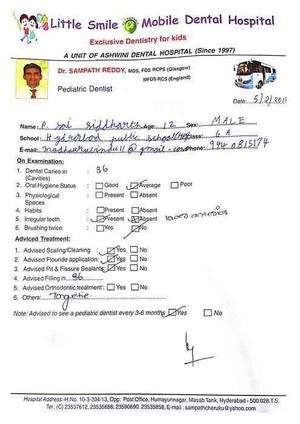 Little Smile Mobile Dental Hospital
Exclusive Dentistry for kids
A UNIT OF ASHWINI DENTAL HOSPITAL (Since 1997)
Dr. SAMPATH REDDY, MDS, FDS RCPS (Glasgow)
MFDS RCS (England)
Pediatric Dentist
Date: 5/2/2011
Name: P. Sai Siddharth Age: 12 Sex: MALE
School: Hyderabad public school Class: 6 A
E-mail: Phone:
On Examination:
1. Dental Caries in : 36
(Cavities)
2. Oral Hygiene Status : Good Average Poor
3. Physiological : Present Absent
Spaces
4. Habits : Present Absent
5. Irregular teeth : Present Absent
6. Brushing twice : Yes No
Adviced Treatment:
1. Advised Scaling/Cleaning : Yes No
2. Advised Flouride application: Yes No
3. Advised Pit & Fissure Sealants: Yes No
4. Advised Filling in 36
5. Advised Orthodontic treatment : Yes No
6. Others:
Note: Advised to see a pediatric dentist every 3-6 months Yes No
Hospital Address-H.No. 10-3-304/13, Opp: Post Office, Humayunnagar, Masab Tank, Hyderabad - 500 028 T.S.
Tel: (C) 23537612, 23535656, 23590690. 23535658, E-mail : sampathcheruku@yahoo.com